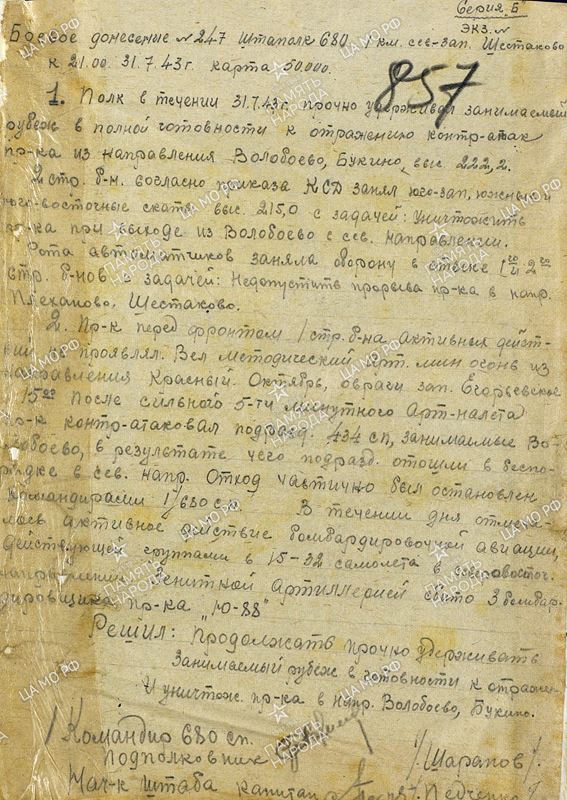 Серия. Б
ЭКЗ. №
Боевое донесение № 247 Штаполк 680 1 км. сев-зап. Шестаково
к 21.00 31.7.43г. карта 50.000.
857
1. Полк в течении 31.7.43г. прочно удерживал занимаемый
рубеж в полной готовности к отражению контр-атак
пр-ка из направления Волобоево, Букино, выс. 222,2.
2 стр. б-н. согласно приказа КСД занял юго-зап, южный и
юго-восточные скаты выс. 215,0 с задачей: уничтожить
пр-ка при выходе из Волобоево в сев. направлении.
Рота автоматчиков заняла оборону в стыке 1го и 2го
стр. б-нов с задачей: Недопустить прорыва пр-ка в напр.
Плеханово, Шестаково.
2. Пр-к перед фронтом 1 стр. б-на активных дейст-
вий не проявлял. Вел методический арт. мин огонь из
направления Красный Октябрь, овраги зап. Егорьевское
15⁰⁰ После сильного 5-ти минутного Арт-налета
пр-к контр-атаковал подразд. 434 сп, занимаемые Во-
лобоево, в результате чего подразд. отошли в беспо-
рядке в сев. напр. Отход частично был остановлен
командирами 1/680 сп. В течении дня отмеча-
лось активное действие бомбардировочной авиации,
действующей группами в 15-32 самолета в северовосточ.
направлении Зенитной артиллерией сбито 3 бомбар-
дировщика пр-ка "Ю-88"
Решил: Продолжать прочно удерживать
Занимаемый рубеж в готовности к отражен.
и уничтож. пр-ка в напр. Волобоево, Букино.
Командир 680 сп.
Подполковник /Шарапов/.
Нач-к штаба капитан
ЦА МО РФ
ПАМЯТЬ НАРОДА